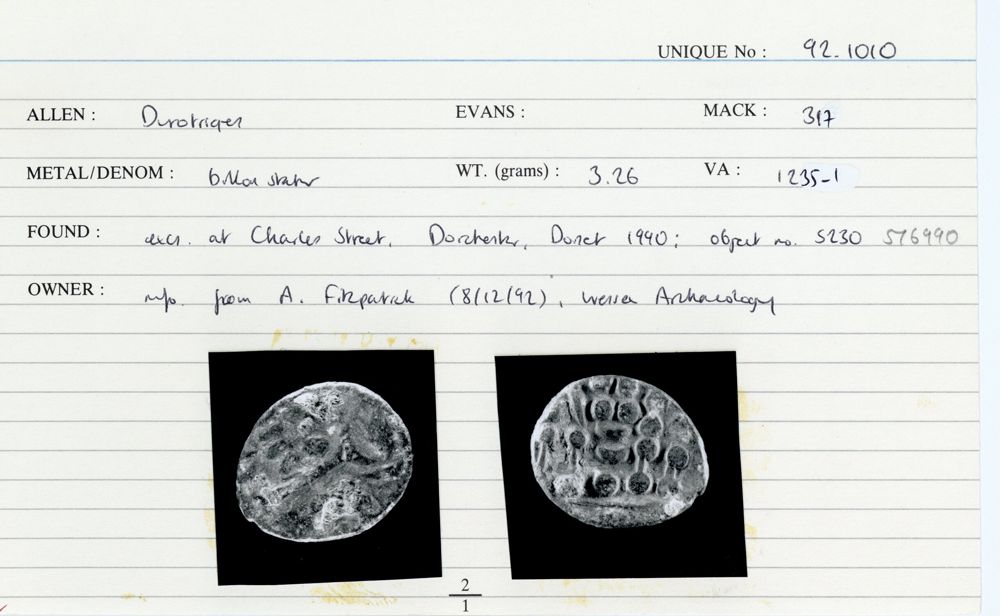 UNIQUE No : 92.1010
ALLEN : Durotriges EVANS : MACK : 317
METAL/DENOM : billon stater WT. (grams) : 3.26 VA : 1235-1
FOUND : exc. at Charles Street, Dorchester, Dorset 1990; object no. 5230 576990
OWNER : info. from A. Fitzpatrick (8/12/92), Wessex Archaeology
2
1